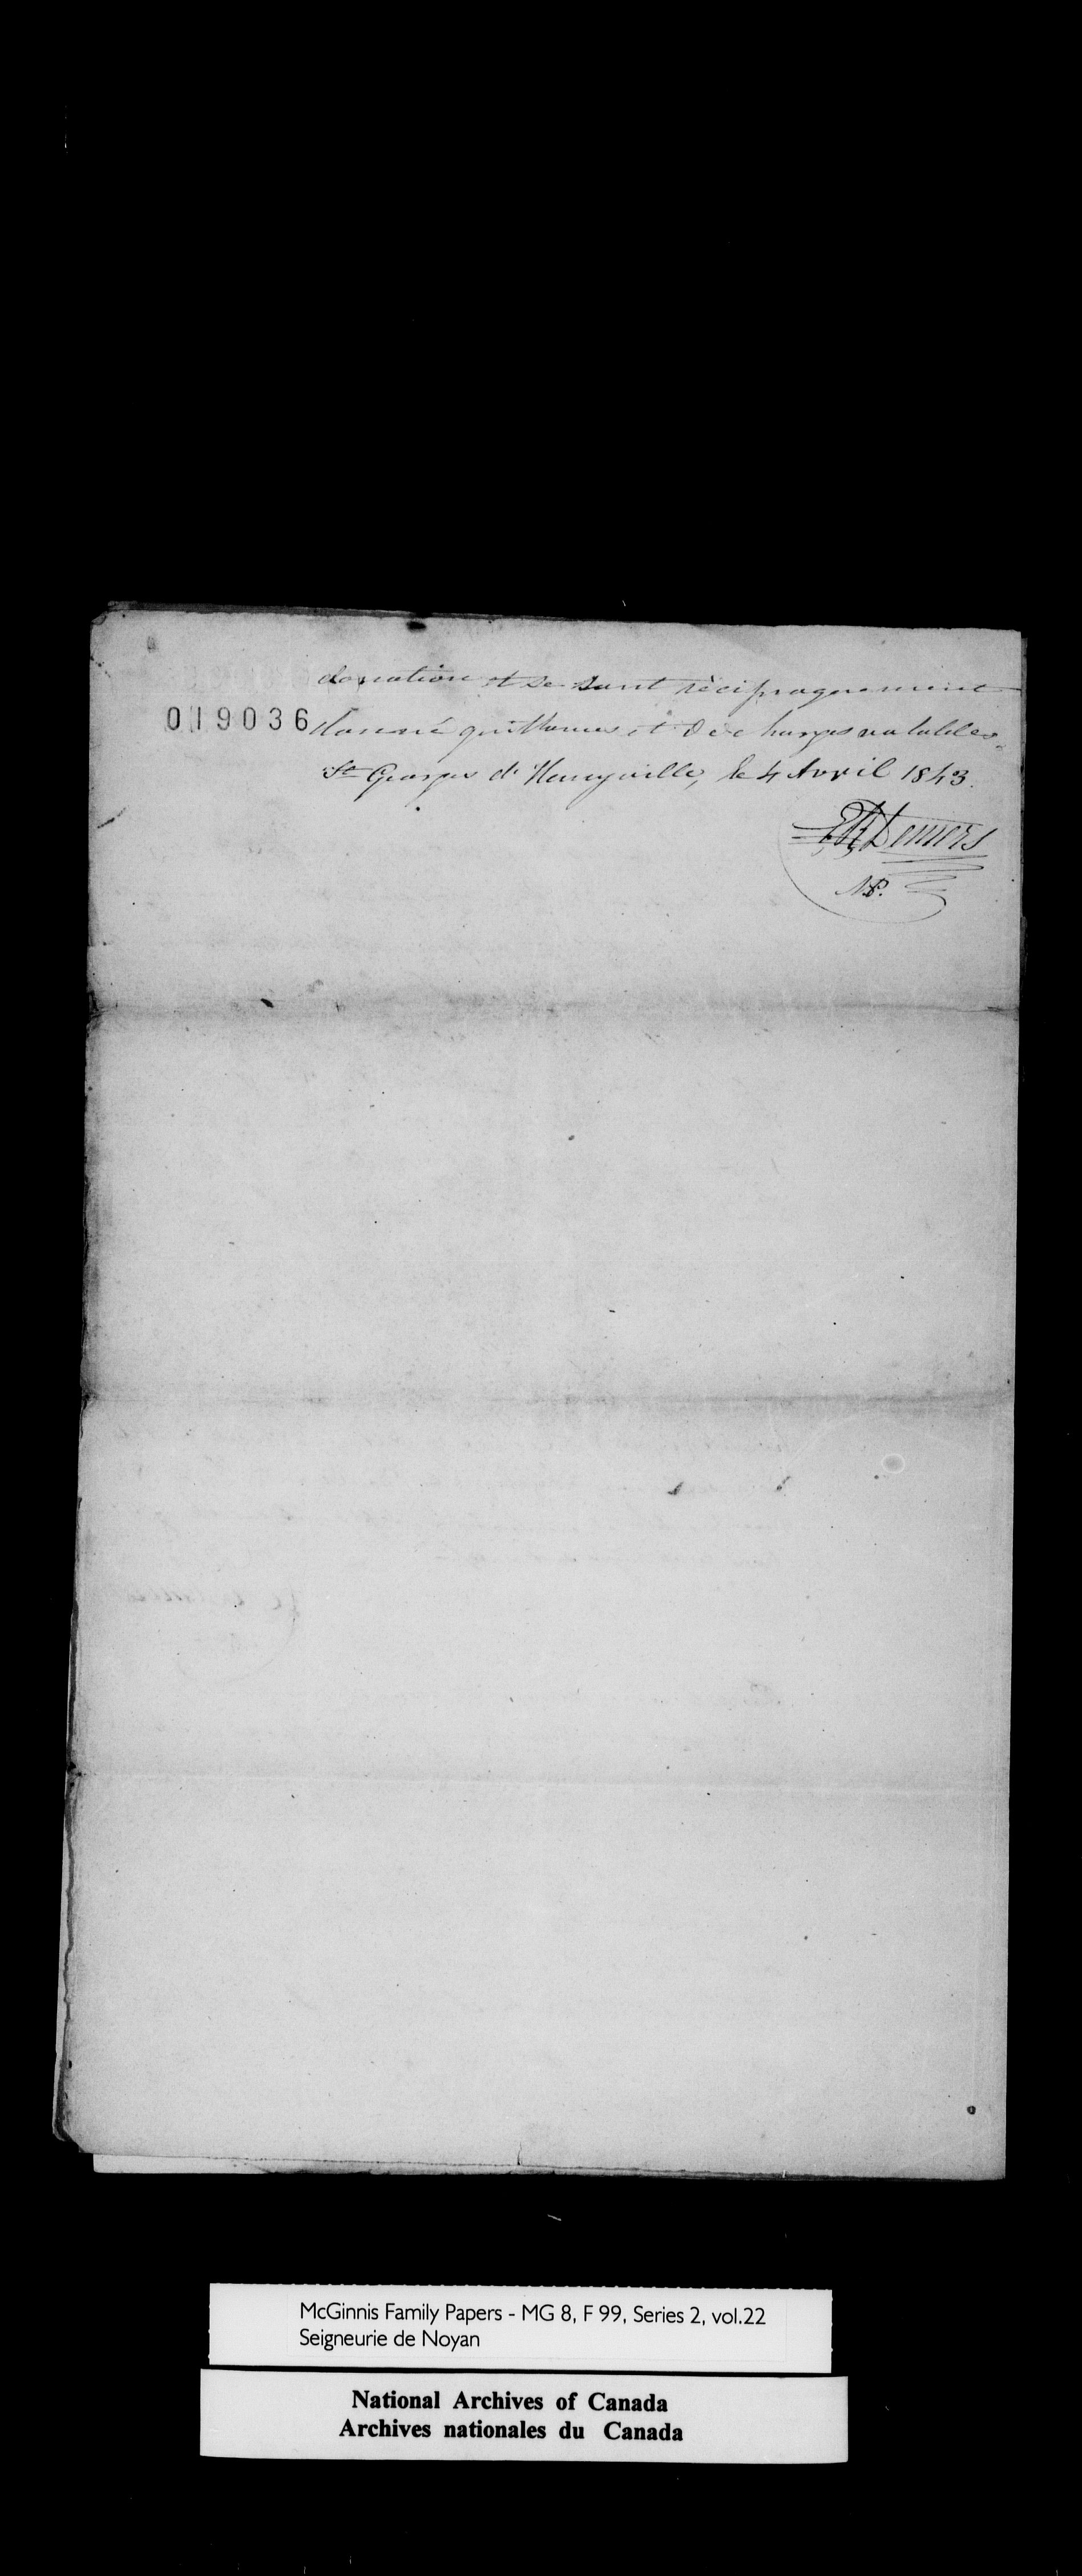 donation et se sont réciproquement
019036 donné quittances et décharges valables.
St Georges d'Henryville, le 4 Avril 1843.
Demers
N.P.
McGinnis Family Papers - MG 8, F 99, Series 2, vol.22
Seigneurie de Noyan
National Archives of Canada
Archives nationales du Canada